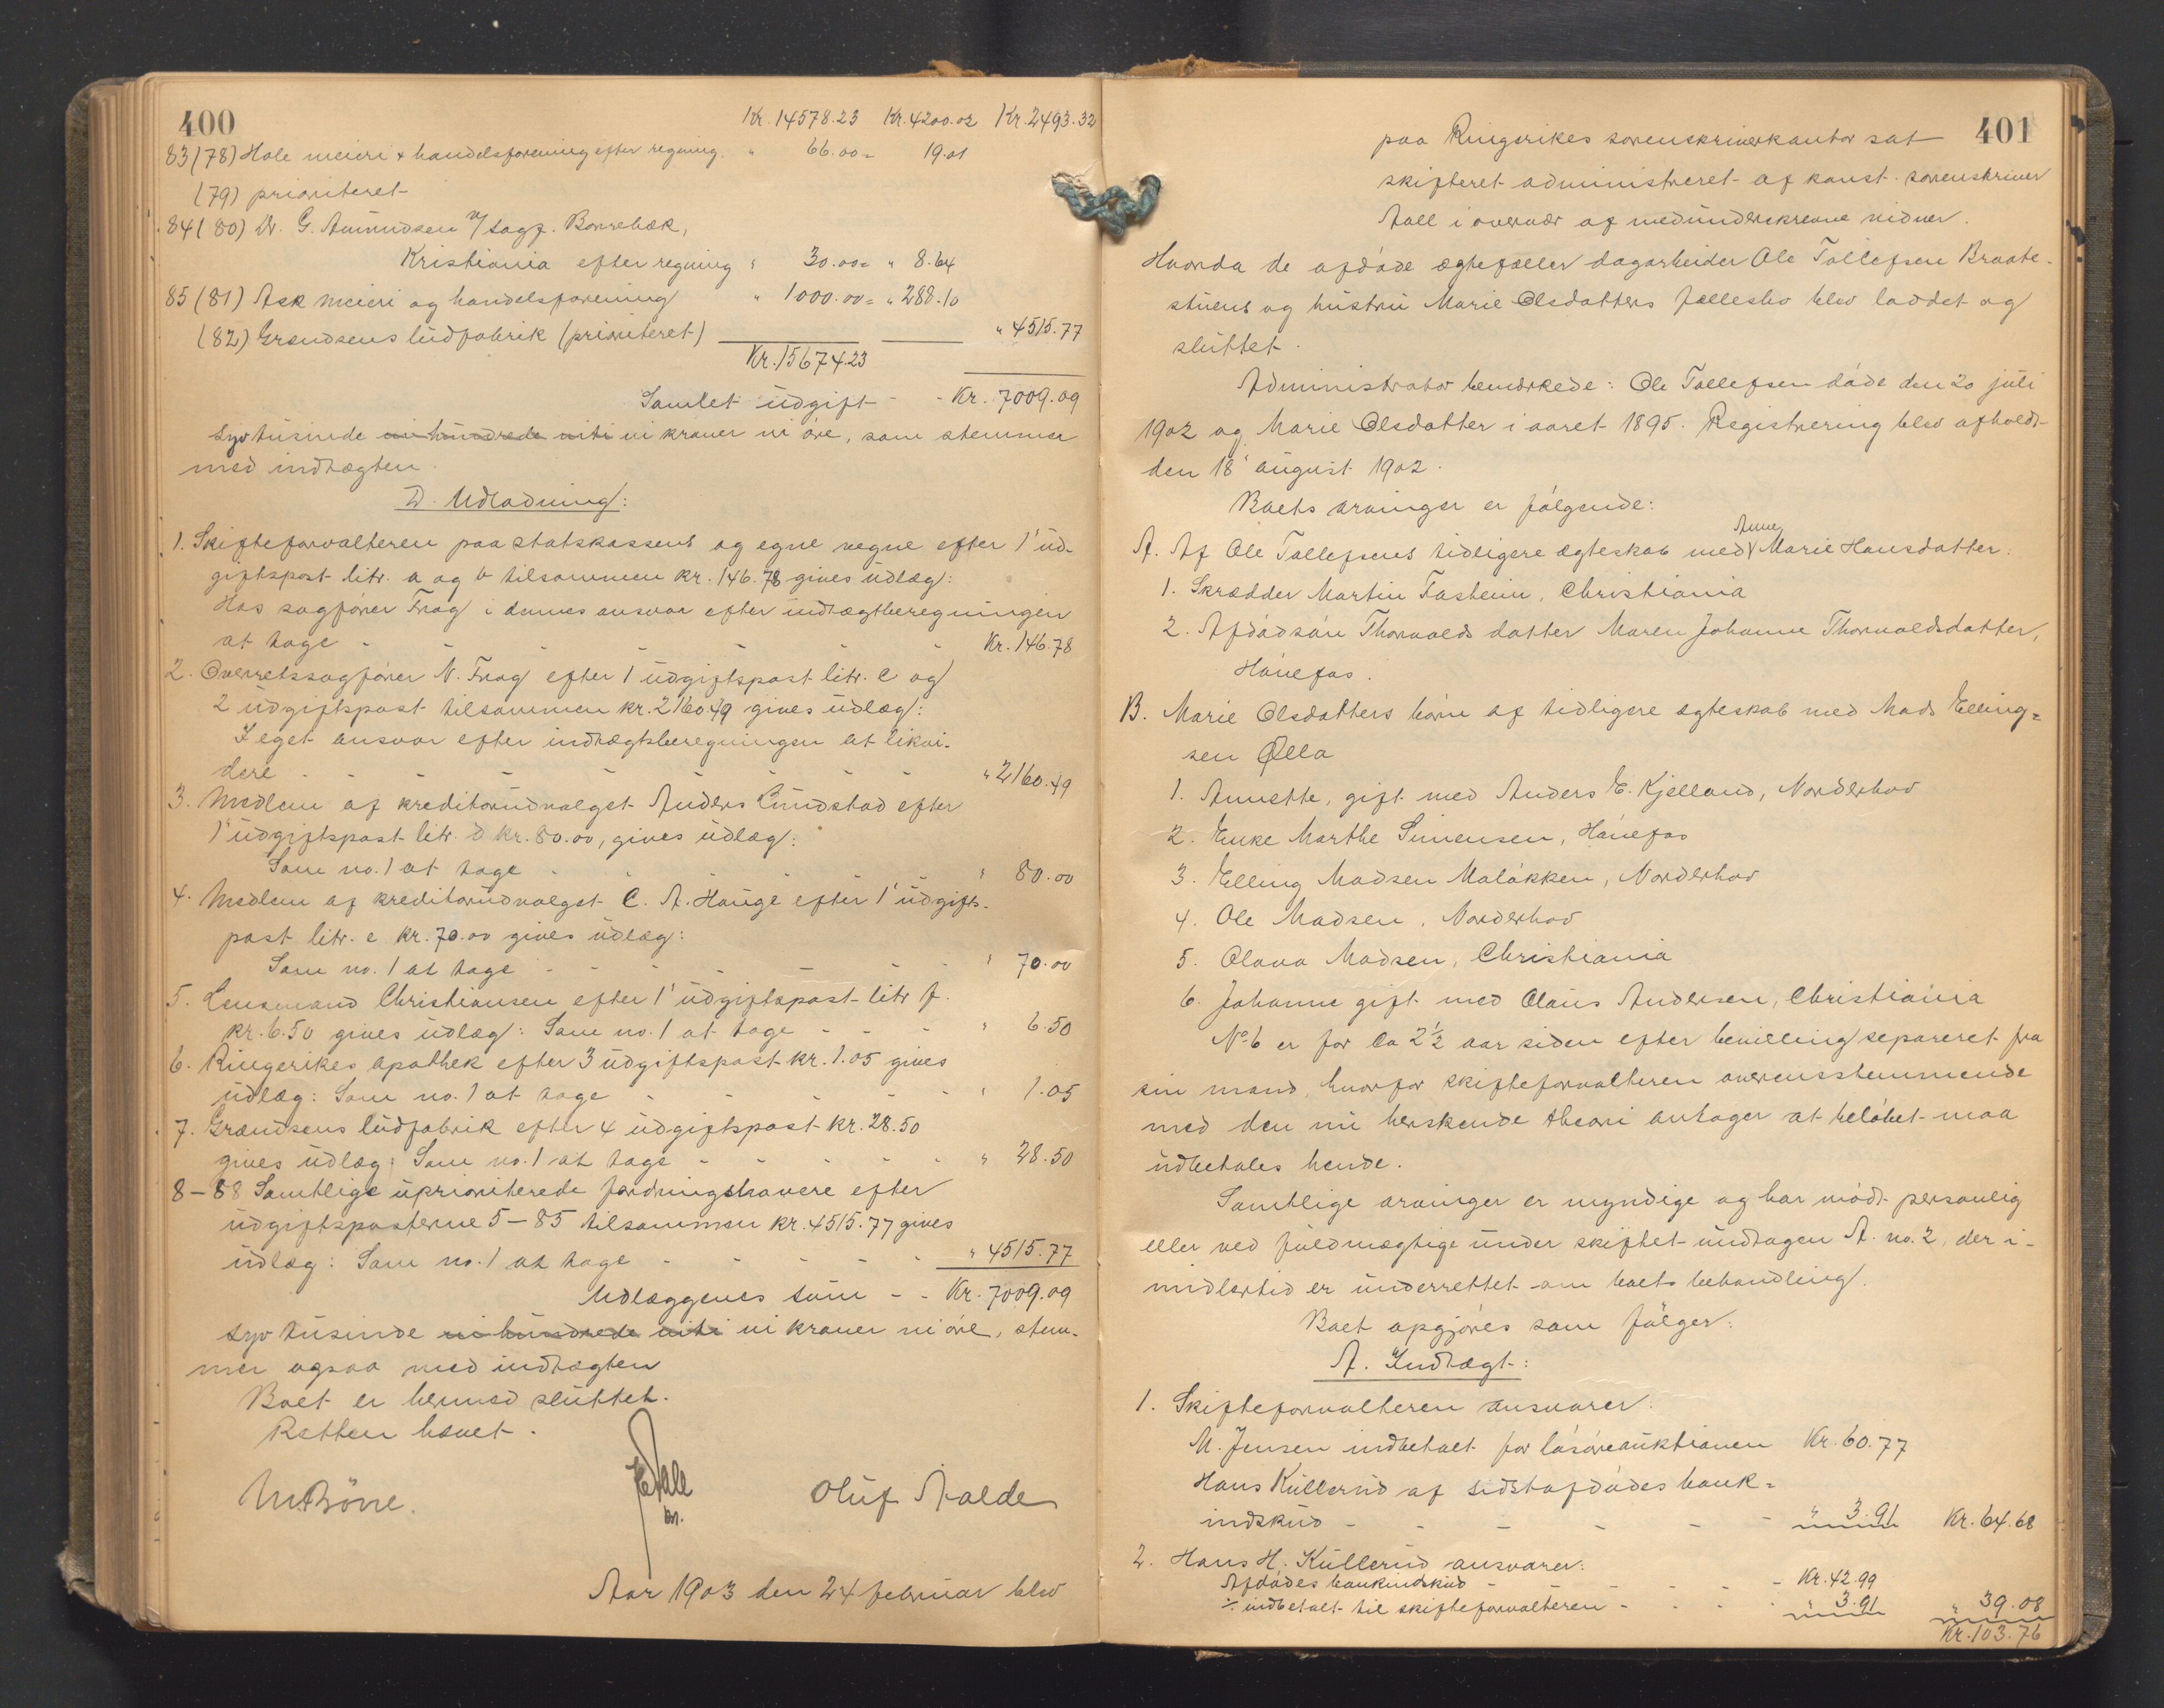 400
Kr. 14578.23 Kr. 4200.02 Kr. 2493.32
83 (78) Hole meieri & handelsforening efter regning. " 66.00 = 19.01
(79) prioriteret
84 (80) Dr. G. Amundsen v/ sagf. Borrebæk,
Kristiania efter regning " 30.00 = " 8.64
85 (81) Ask meieri og handelsforening " 1000.00 = " 288.10
(82) Grændsens ludfabrik (prioriteret) " 4515.77
Kr. 15674.23
Samlet udgift - - Kr. 7009.09
syv tusinde ni hundrede niti ni kroner ni øre, som stemmer
med indtægten.
D. Udlodning:
1. Skifteforvalteren paa statskassens og egne vegne efter 1' ud-
giftspost litr. a og b tilsammen kr. 146.78 gives udlæg:
Hos sagfører Frog i dennes ansvar efter indtægtberegningen
at tage - - - - - - Kr. 146.78
2. Overretssagfører N. Frog efter 1 udgiftspost litr. c og
2 udgiftspost tilsammen kr. 2160.49 gives udlæg:
I eget ansvar efter indtægtsberegningen at likvi-
dere - - - - - - - " 2160.49
3. Medlem af kreditorudvalget Anders Gundstad efter
1' udgiftspost litr. d kr. 80.00, gives udlæg:
Som no. 1 at tage - - - - - " 80.00
4. Medlem af kreditorudvalget C. A. Hauge efter 1' udgifts-
post litr. e kr. 70.00 gives udlæg:
Som no. 1 at tage - - - - - - " 70.00
5. Lensmand Christiansen efter 1' udgiftspost litr f.
kr. 6.50 gives udlæg: Som no. 1 at tage - - - " 6.50
6. Ringerikes apothek efter 3 udgiftspost kr. 1.05 gives
udlæg: Som no. 1 at tage - - - - - " 1.05
7. Grændsens ludfabrik efter 4 udgiftspost kr. 28.50
gives udlæg: Som no. 1 at tage - - - - - " 28.50
8-88 Samtlige uprioriterede fordringshavere efter
udgiftsposterne 5-85 tilsammen kr. 4515.77 gives
udlæg: Som no. 1 at tage - - - - - " 4515.77
Udlæggenes sum - - Kr. 7009.09
syv tusinde ni hundrede niti ni kroner ni øre, stem-
mer ogsaa med indtægten
Boet er hermed sluttet.
Retten hævet.
M. Børre. Oluf Aalde
Aar 1903 den 24 februar blev
401
paa Ringerikes sorenskriverkontor sat
skifteret administreret af konst. sorenskriver
Aall i overvær af medunderskrevne vidner.
Hvorda de afdøde ægtefæller dagarbeider Ole Tollefsen Braate-
stuens og hustru Marie Olsdatters fællesbo blev loddet og
sluttet.
Administrator bemærkede: Ole Tollefsen døde den 20 juli
1902 og Marie Olsdatter i aaret 1895. Registrering blev afholdt
den 18' august 1902.
Boets arvinger er følgende:
A. Af Ole Tollefsens tidligere ægteskab med Anne Marie Hansdatter:
1. Skrædder Martin Fasteim, Christiania
2. Afdød søn Thorvalds datter Maren Johanne Thorvaldsdatter,
Hønefos.
B. Marie Olsdatters børn af tidligere ægteskab med Mads Elling=
sen Ølla
1. Annette, gift med Anders E. Kjelland, Norderhov
2. Enke Marthe Simensen, Hønefos
3. Elling Madsen Maløkken, Norderhov
4. Ole Madsen, Norderhov
5. Olava Madsen, Christiania
6. Johanne gift med Olaus Andersen, Christiania
No 6 er for ca 2½ aar siden efter bevilling separeret fra
sin mand, hvorfor skifteforvalteren overensstemmende
med den nu herskende theori antager at beløbet maa
udbetales hende.
Samtlige arvinger er myndige og har mødt personlig
eller ved fuldmægtige under skiftet undtagen A. no. 2, der i-
midlertid er underrettet om boets behandling.
Boet opgjøres som følger:
A. Indtægt:
1. Skifteforvalteren ansvarer:
M. Jensen indbetalt for løsøreauktionen Kr. 60.77
Hans Kullerud af sidstafdødes bank=
indskud - - - - - - " 3.91 Kr. 64.68
2. Hans H. Kullerud ansvarer:
Afdødes bankindskud - - - - - - Kr. 42.99
÷ indbetalt til skifteforvalteren - - - - " 3.91 " 39.08
Kr. 103.76